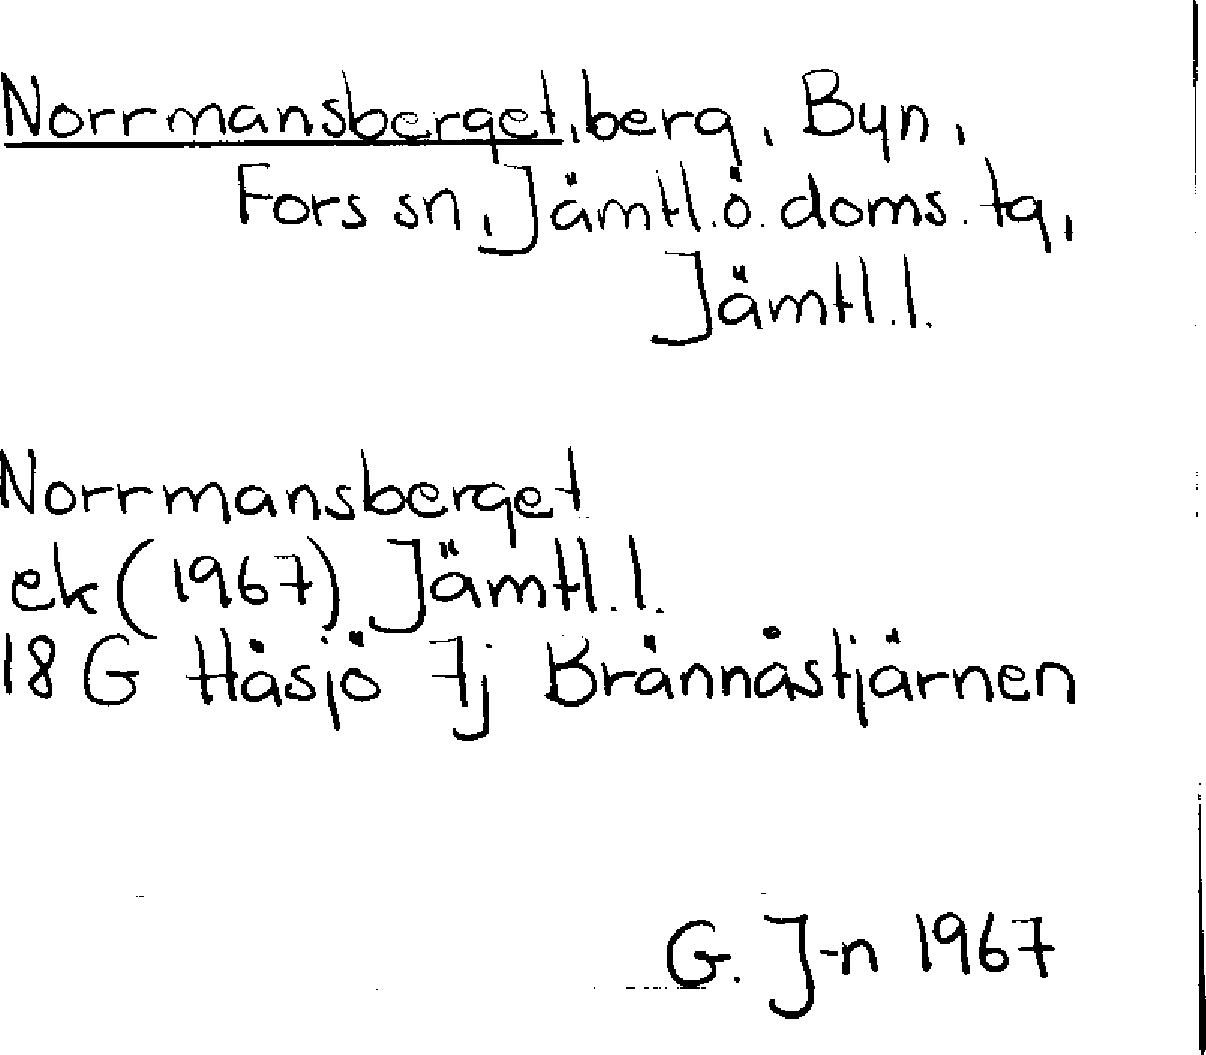 Norrmansberget, berg, Byn,
Fors sn, Jämtl.ö.doms.tg,
Jämtl.l.
Norrmansberget
ek (1967) Jämtl.l.
18 G Håsjö 7j Brännåstjärnen
G. J-n 1967